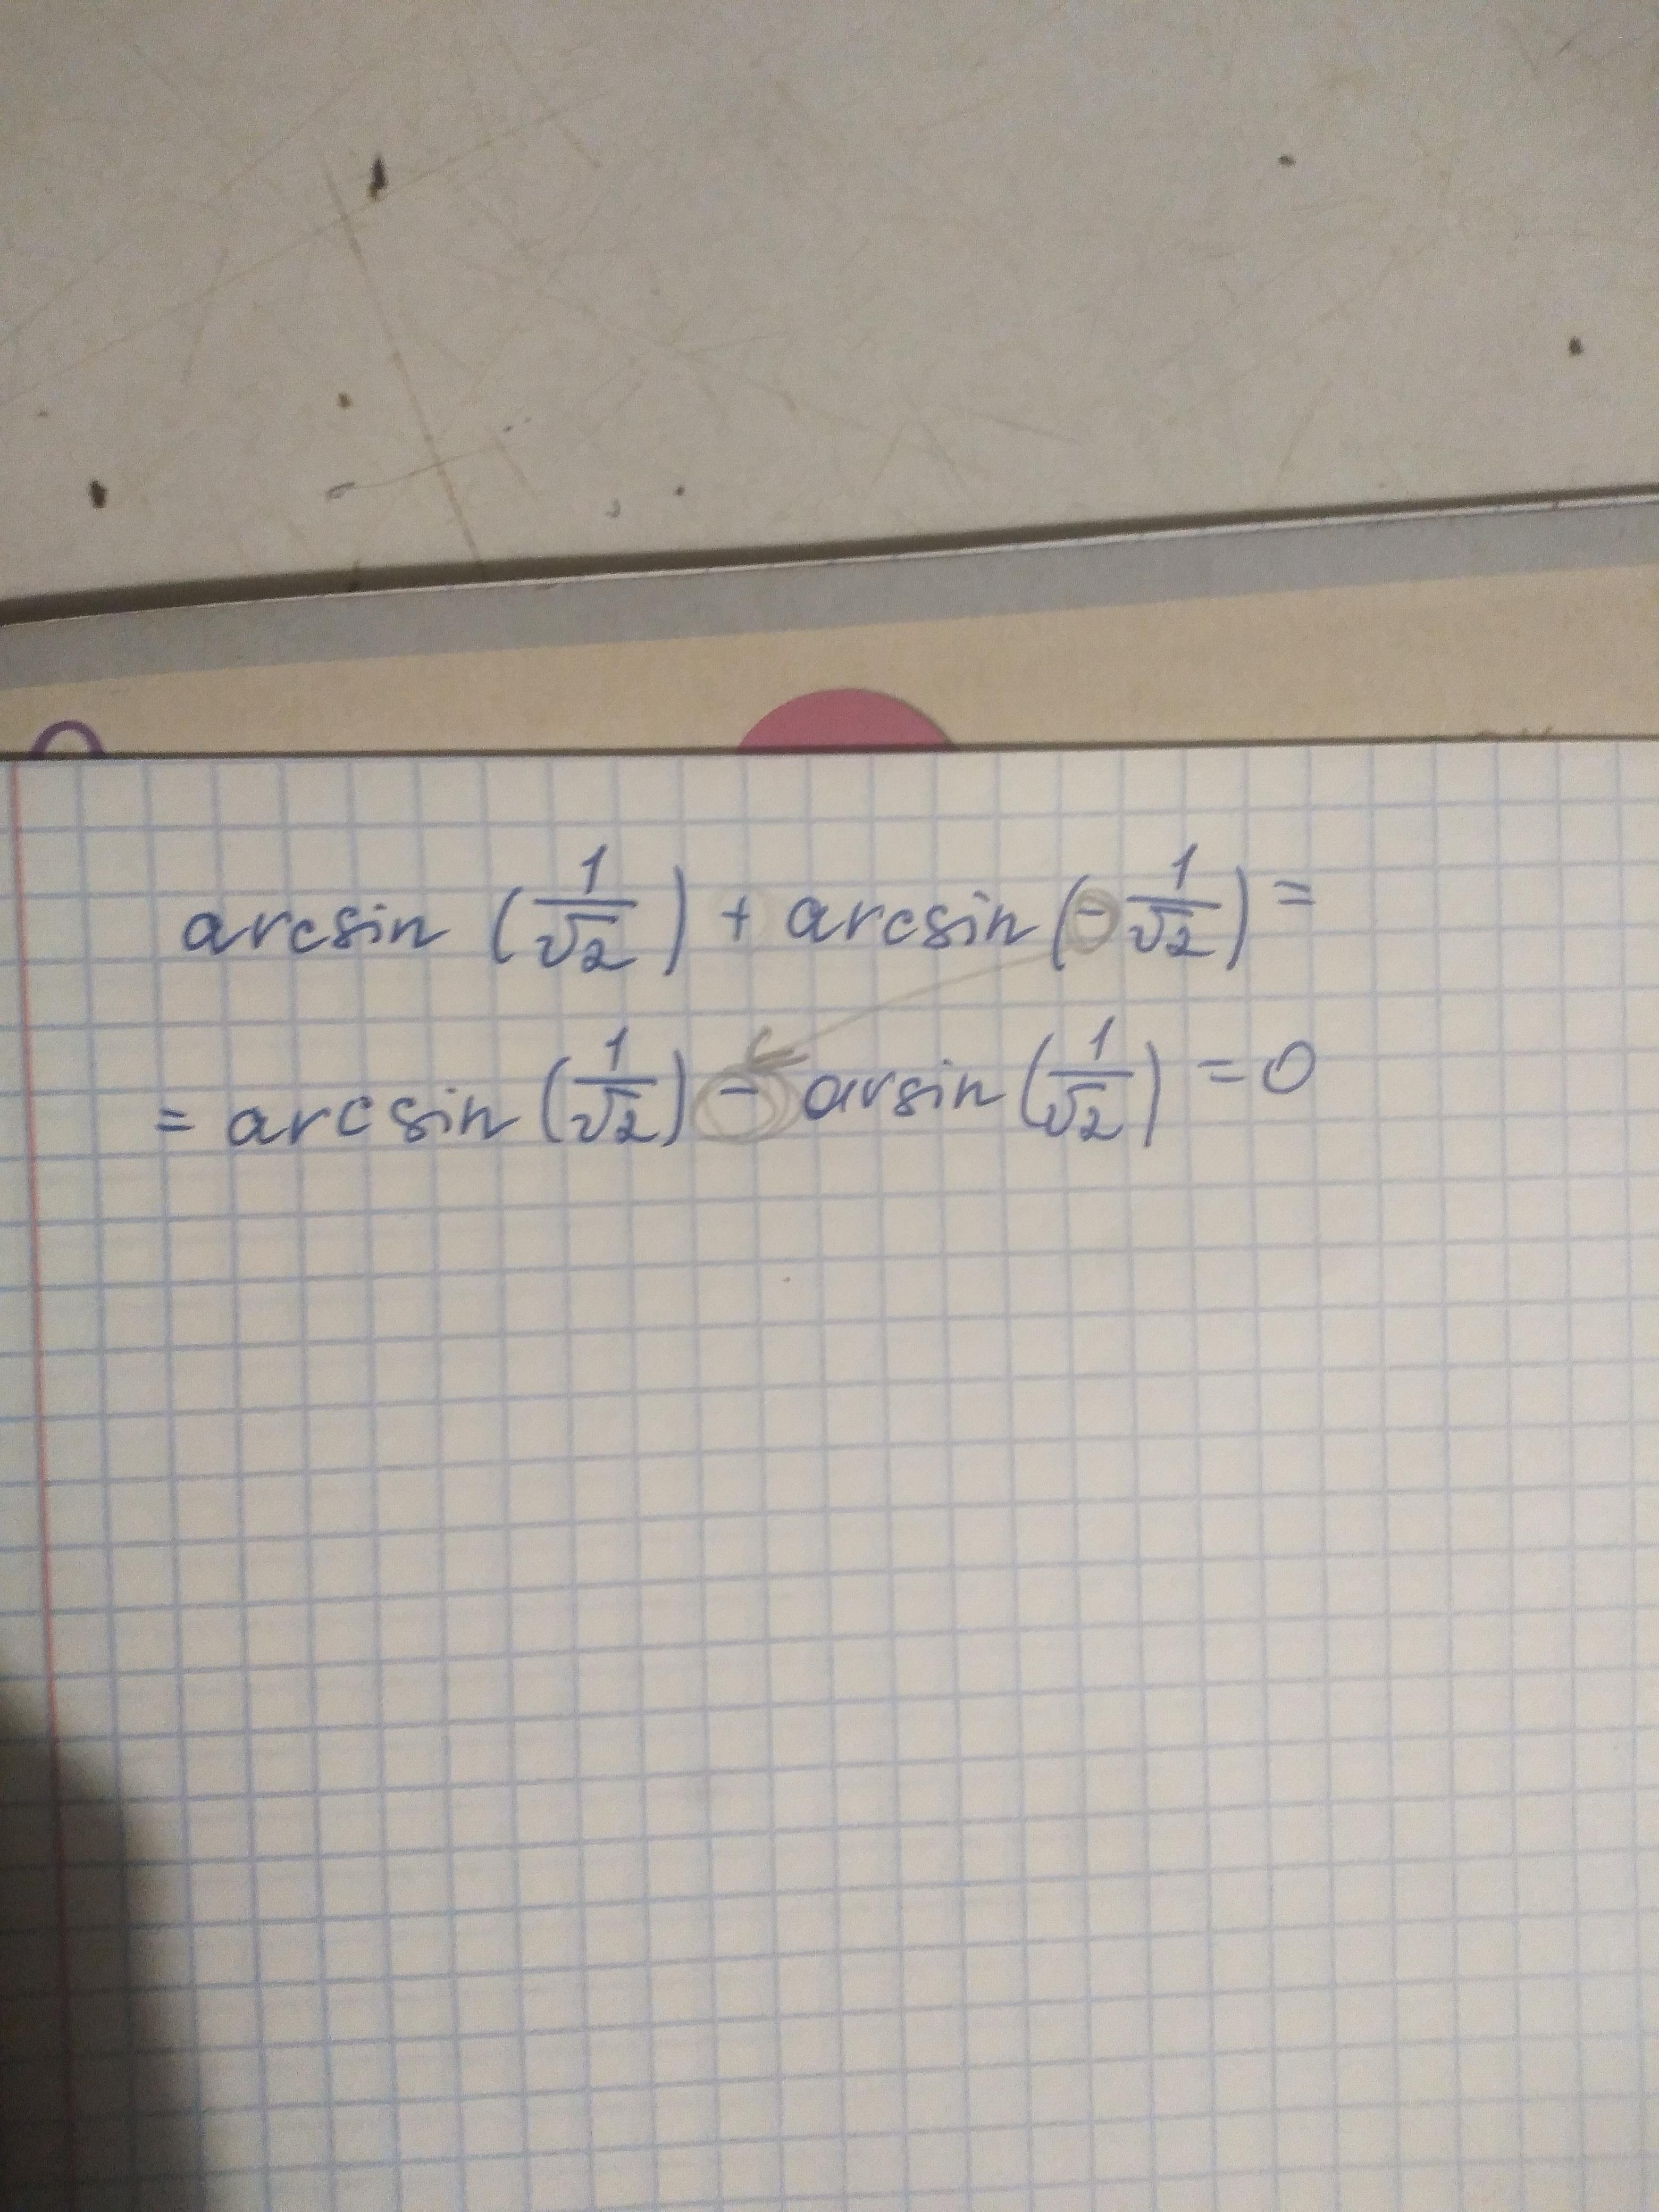 arcsin (1/√2) + arcsin (-1/√2) =
= arcsin (1/√2) - arsin (1/√2) = 0